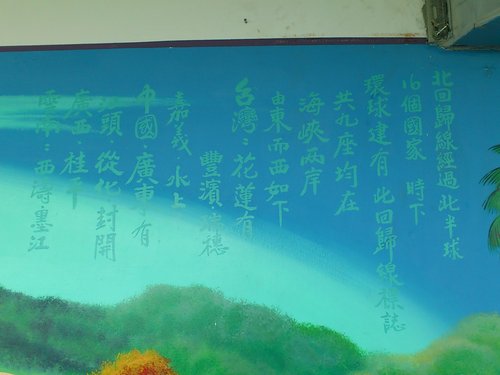 北回歸線經過北半球
16個國家 時下
環球建有此回歸線標誌
共九座均在
海峽兩岸
由東而西如下
台灣：花蓮有
豐濱瑞穗
嘉義．水上
中國．廣東有
汕頭．從化封開
廣西．桂平
雲南：西濤墨江